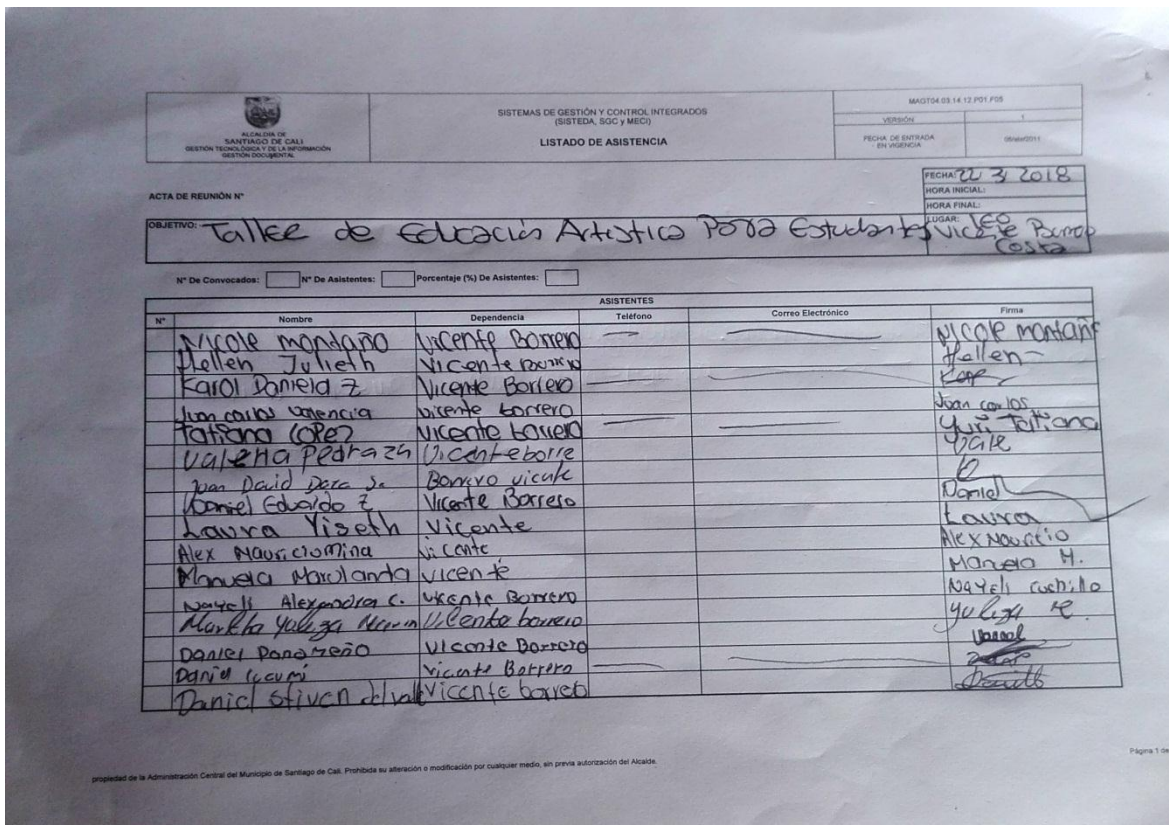 ALCALDÍA DE
SANTIAGO DE CALI
GESTIÓN TECNOLÓGICA Y DE LA INFORMACIÓN
GESTIÓN DOCUMENTAL
SISTEMAS DE GESTIÓN Y CONTROL INTEGRADOS
(SISTEDA, SGC y MECI)
LISTADO DE ASISTENCIA
MAGT04.03.14.12.P01.F05
VERSIÓN 1
FECHA DE ENTRADA
EN VIGENCIA
ACTA DE REUNIÓN N°
FECHA: 22 3 2018
HORA INICIAL:
HORA FINAL:
OBJETIVO: Taller de Educación Artistica Para Estudiantes
LUGAR: IEO
Vicente Borrero
Costa
N° De Convocados: N° De Asistentes: Porcentaje (%) De Asistentes:
ASISTENTES
N° Nombre Dependencia Teléfono Correo Electrónico Firma
Nicole montaño Vicente Borrero Nicole montañ
Hellen Julieth Vicente Borrero Hellen
Karol Daniela Z Vicente Borrero
Juan carlos Valencia vicente borrero Juan carlos
Tatiana lopez vicente borrero Yuri Tatiana
Valeria Pedraza Vicente borre Vale
Juan David Borrero vicente
Daniel Eduardo Z Vicente Borrero Daniel
Laura Yiseth Vicente Laura
Alex Mauricio mina Vicente Alex Mauricio
Manuela Marulanda vicente Manuela M.
Nayeli Alexandra C. Vicente Borrero Nayeli cuchillo
Martha Yuliza Vicente borrero yuliza
Daniel Panameño Vicente Borrero
Daniel lucumi Vicente Borrero
Daniel stiven del valle Vicente borrero
propiedad de la Administración Central del Municipio de Santiago de Cali. Prohibida su alteración o modificación por cualquier medio, sin previa autorización del Alcalde.
Página 1 de